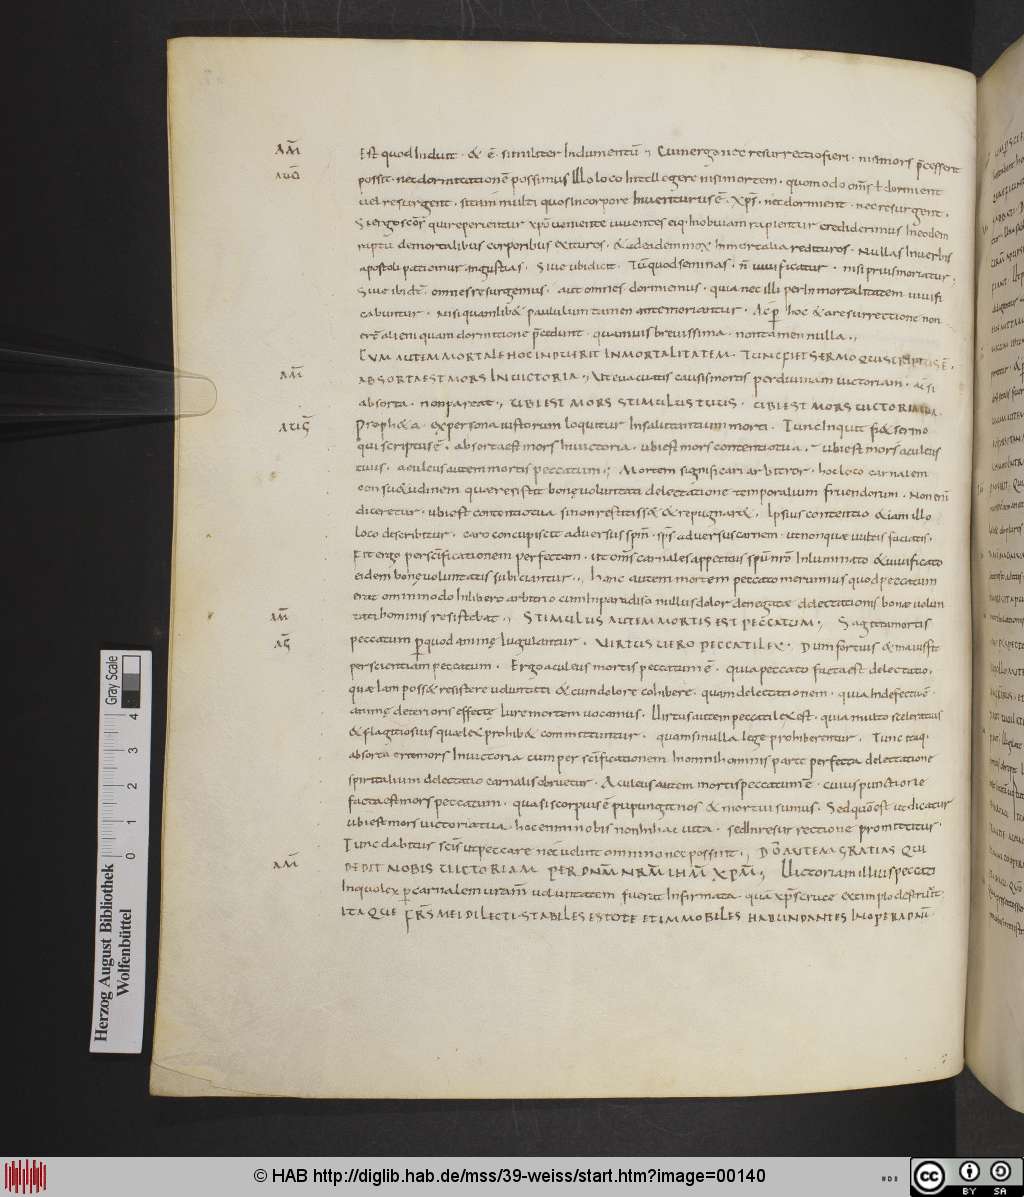 AM̄
Est quod Induit · & ē similiter Indumentū ; Cum ergo nec resurrectio fieri · nisi mors p̄cesserit
AUḠ
possit · nec dormitationē possimus Illo loco Intellegere nisi mortem · quomodo om̄s t dormient
uel resurgent · si tam multi quos In corpore Inueniturus ē · xp̄s · nec dormient · nec resurgent ·
Si ergo sc̄os qui reperientur xp̄o ueniente uiuentes eiq · In obuiam rapientur crediderimus In eodem
raptu de mortalibus corporibus exituros · & ad eadem mox Inmortalia redituros · Nullas In uerbis
apostoli patiemur angustias · Siue ubi dicit · Tū quod seminas · n̄ uiuificatur · nisi prius moriatur ·
Siue ibi dē · omnes resurgemus · aut omnes dormiemus · quia nec illi per Inmortalitatem uiuifi
cabuntur · nisi quamlib& paululum tamen ante moriantur · Ac p hoc & a resurrectione non
er̄t alieni quam dormitione p̄cedunt · quamuis breuissima · non tamen nulla ·,
CUM AUTEM MORTALE HOC INDUERIT INMORTALITATEM · TUNC FIET SERMO QUI SCRIPTUS Ē ·
AM̄
ABSORTA EST MORS IN UICTORIA ·, Ut euacuatis causis mortis per diuinam uictoriam ·
absorta · non pareat ·, UBI EST MORS STIMULUS TUUS · UBI EST MORS UICTORIA TUA ·
AUḠ
Proph&a · ex persona iustorum loquitur Insultantium morti · Tunc Inquit fi& sermo
qui scriptus ē · absorta est mors In uictoria · ubi est mors contentio tua · ubi est mors aculeus
tuus · aculeus autem mortis peccatum ·; Mortem significari arbitror · hoc loco carnalem
consu&udinem quae resistit bonę uoluntati delectatione temporalium fruendorum · Non eni
diceretur · ubi est contentio tua si non restitiss& & repugnar& · Ipsius contentio &iam illo
loco describitur · caro concupiscit aduersus spm̄ · sps̄ aduersus carnem · ut non quae uultis faciatis ·
Fit ergo per sc̄ificationem perfectam · ut om̄s carnales appetitus spū nr̄o Inluminato & uiuificato
eidem bonę uoluntatis subiciantur ·, hanc autem mortem peccato meruimus quod peccatum
erat omnimodo In libero arbitrio cum In paradiso nullus dolor denegatae delectationis bonae uolun
AM̄
tati hominis resistebat ·, STIMULUS AUTEM MORTIS EST PECCATUM ·, Sagitta mortis
AḠ
peccatum p quod animę Iugulantur · UIRTUS UERO PECCATI LEX · Dum fortius & maius fit
per scientiam peccatum · Ergo aculeus mortis peccatum ē · quia peccato facta est delectatio ·
quae Iam poss& resistere uoluntati & cum dolore cohibere · quam delectationem · quia In defectu ē ·
animę deterioris effectę Iure mortem uocamus · Uirtus autem peccati lex est · quia multo sceleratius
& flagitiosius quae lex prohib& committuntur · quam si nulla lege prohiberentur · Tunc itaq ·
absorta erit mors In uictoria cum per sc̄ificationem In omni hominis parte perfecta delectatione
spiritalium delectatio carnalis obruetur · Aculeus autem mortis peccatum ē · cuius punctione
facta est mors peccatum · quasi scorpius ē pupungit nos & mortui sumus · Sed quō est ut dicatur
ubi est mors uictoria tua · hoc enim nobis non In hac uita · sed In resurrectione promittitur ·
Tunc dabitur sc̄is ut peccare nec uelint omnino nec possint ·, DŌ AUTEM GRATIAS QUI
AM̄
DEDIT NOBIS UICTORIAM PER DNM̄ NRM̄ IHM̄ XPM̄ ·, Uictoriam illius peccati
In quo lex p carnalem uitam uoluntatem fuerat Infirmata · quā xp̄s cruce extimplo destruxit
ITAQUE FRS̄ MEI DILECTI STABILES ESTOTE ET IMMOBILES HABUNDANTES IN OPERA DNĪ
Gray Scale
0 1 2 3 4
Herzog August Bibliothek
Wolfenbüttel
© HAB http://diglib.hab.de/mss/39-weiss/start.htm?image=00140
cc BY SA